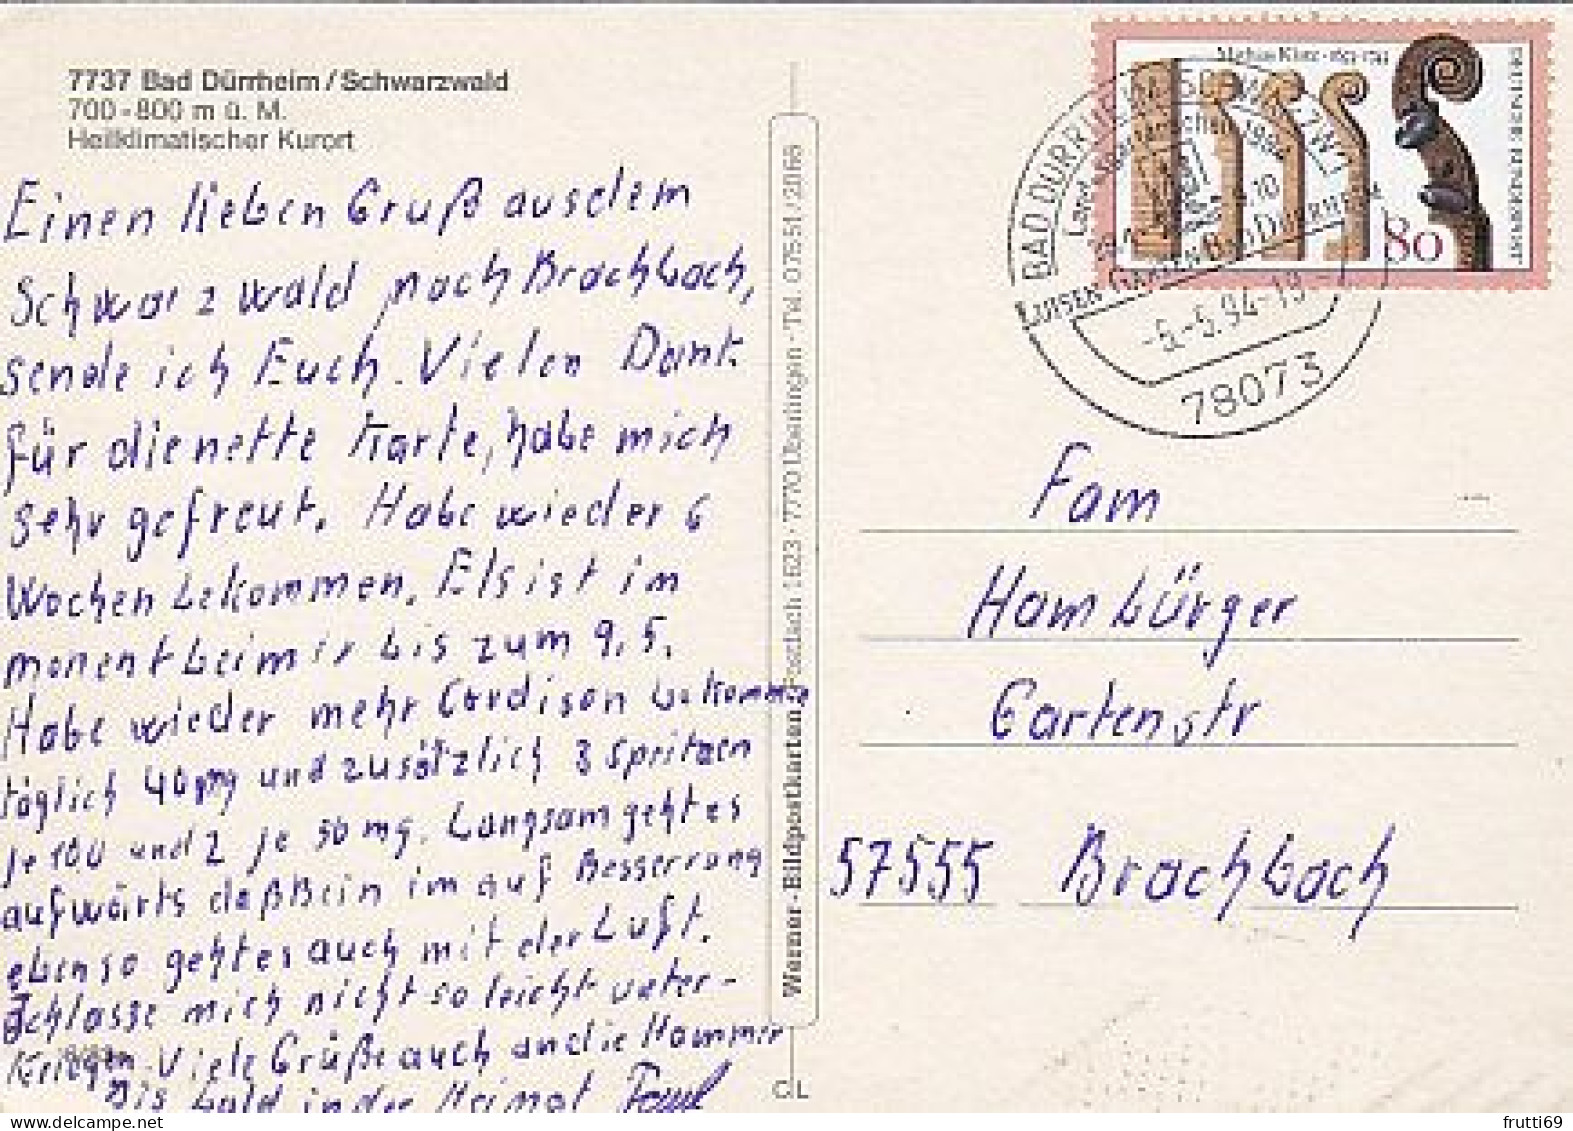 7737 Bad Dürrheim/Schwarzwald
700-800 m ü. M.
Heilklimatischer Kurort
Einen lieben Gruß aus dem
Schwarzwald nach Brachbach,
sende ich Euch. Vielen Dank
für die nette Karte, habe mich
sehr gefreut. Habe wieder 6
Wochen bekommen. Els ist im
moment bei mir bis zum 9.5.
Habe wieder mehr Cordison bekommen
täglich 40mg und zusätzlich 3 Spritzen
je 100 und 2 je 50 mg. Langsam geht es
aufwärts daß Bein im auf Besserrung
ebenso geht es auch mit der Luft.
Schlasse mich nicht so leicht unter-
kriegen. Viele Grüße auch an die Hammer
Bis bald in der Heimat Paul
Werner-Bildpostkarten, Postfach 1623 · 7770 Überlingen · Tel. 07551/2066
CL
Mathias Klotz · 1653-1743
80
DEUTSCHE BUNDESPOST
BAD DÜRRHEIM
Landesgartenschau 1994
LUISEN-GARTEN BAD DÜRRHEIM
-5.-5.94-19
78073
Fam
Hambürger
Gartenstr
57555 Brachbach
frutti69